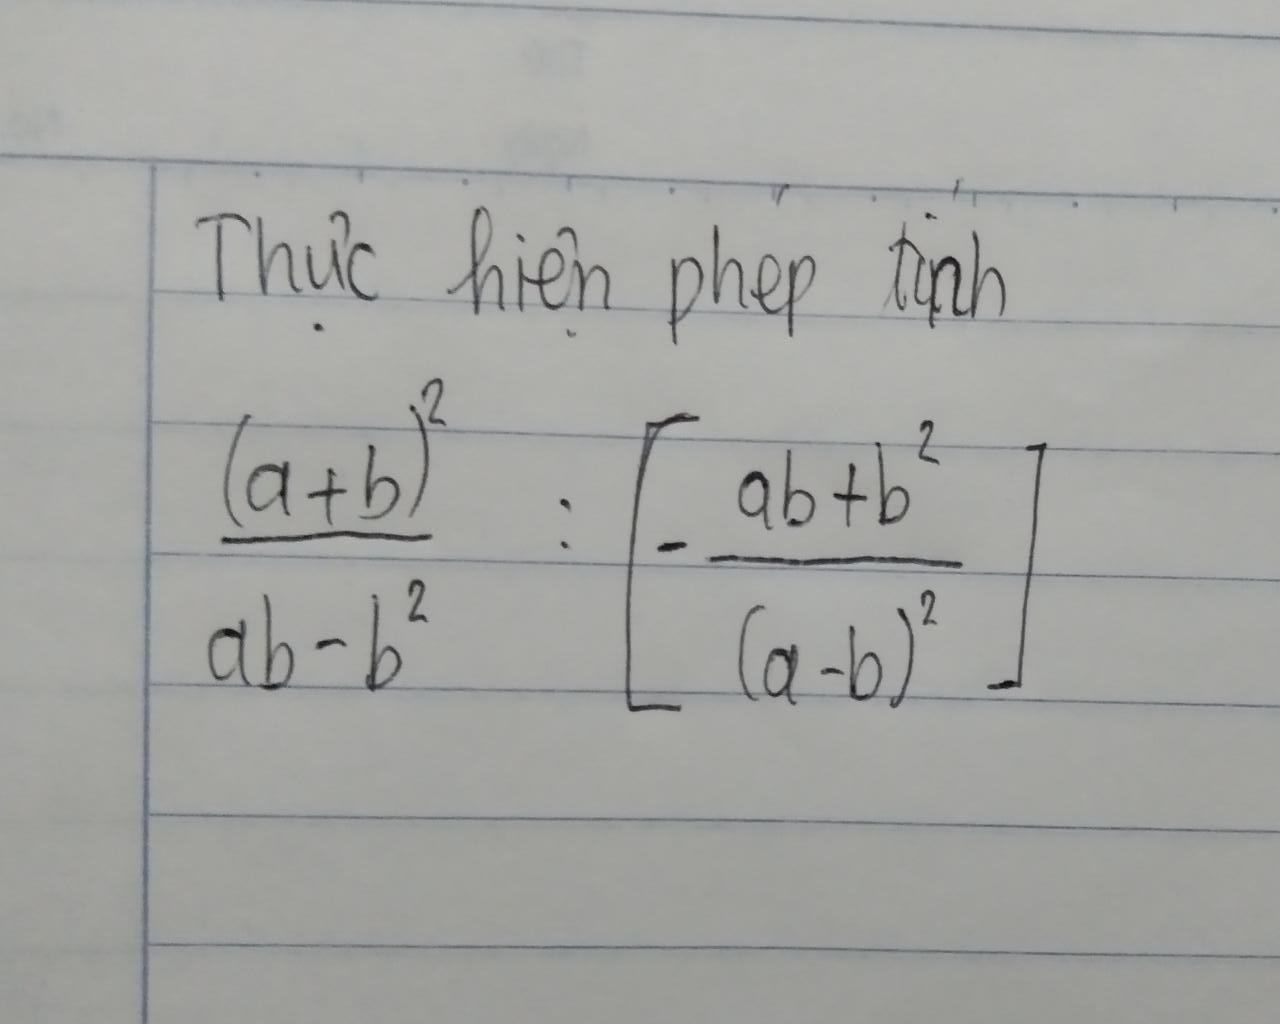 Thực hiện phép tính
(a+b)² / (ab-b²) : [- (ab+b²) / (a-b)²]